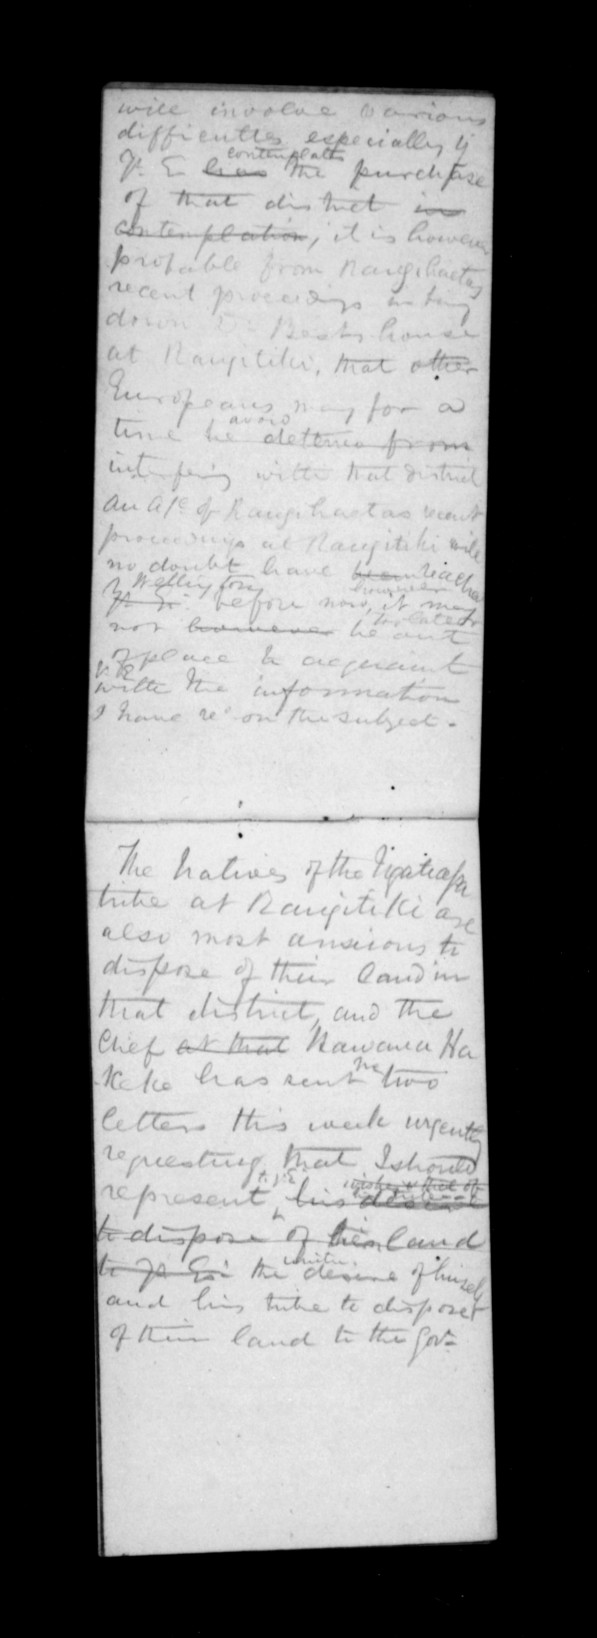 will involve various
difficulties especially if
Yr. E. has contemplates the purchase
of that district in
contemplation; it is however
probable from Rangihaetas
recent proceedings in
down Best's house
at Rangitiki, that other
Europeans may for a
time be avoid from
interfering with that district
An a/c of Rangihaetas recent
proceedings at Rangitiki will
no doubt have been reached
Wellington Yr. E. before now, it may however
not however be out
of place to acquaint
Y. E.
with the information
I have recd on the subject.
The Natives of the Ngatiapa
tribe at Rangitiki are
also most anxious to
dispose of their land in
that district, and the
Chief at that Kawana Ha
Keke has sent me two
letters this week urgently
requesting that I should
represent to Y.E. his desire
to dispose of his land
to Yr. Ex. the desire of himself
and his tribe to dispose
of their land to the Govt